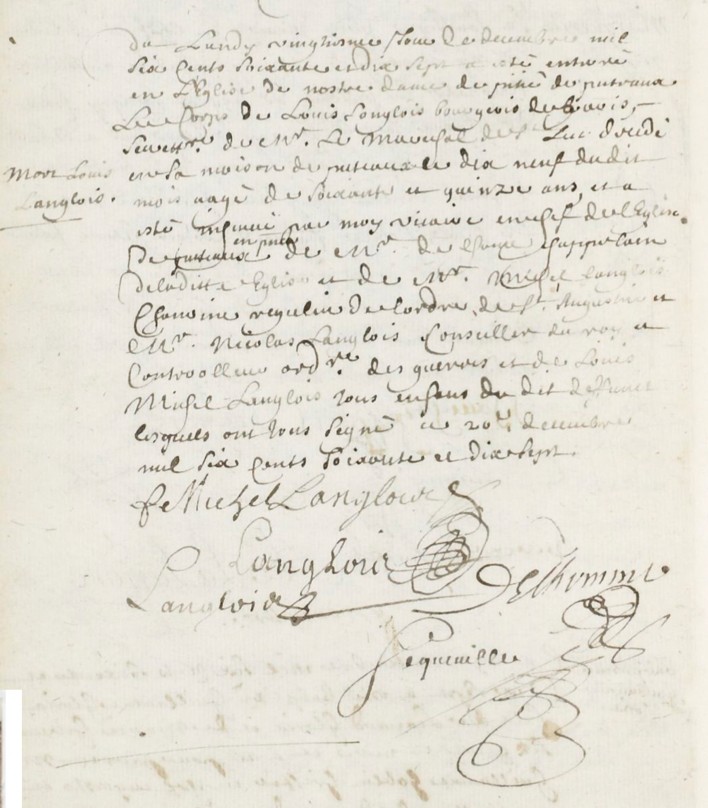 du Lundy vingtisme Jour de decembre mil
six Cents soixante et dix sept a esté enterré
en L'Eglise de nostre dame de pitié de puteaux
Le Corps de Louis Langlois bourgeois de Paris,
de Mr. Le Mareschal de Luc decedé
Mort Louis
Langlois.
en sa maison de puteaux le dix neuf dudit
mois aagé de soixante et quinze ans, et a
esté inhumé par moy vicaire en chef de l'Eglise
de puteaux en pnce de Mr. de Chappelain
de laditte Eglise et de Mr. Michel Langlois
Chanoine regulier de l'ordre de St. Augustin et
Mr. Nicolas Langlois Conseiller du roy et
Controlleur ordre. des guerres et de Louis
Michel Langlois tous enfans du dit deffunct
lesquels ont tous signé ce 20e decembre
mil six Cents soixante et dix sept.
f Michel Langlois
Langlois
Langlois
Delhomme
Pequeville